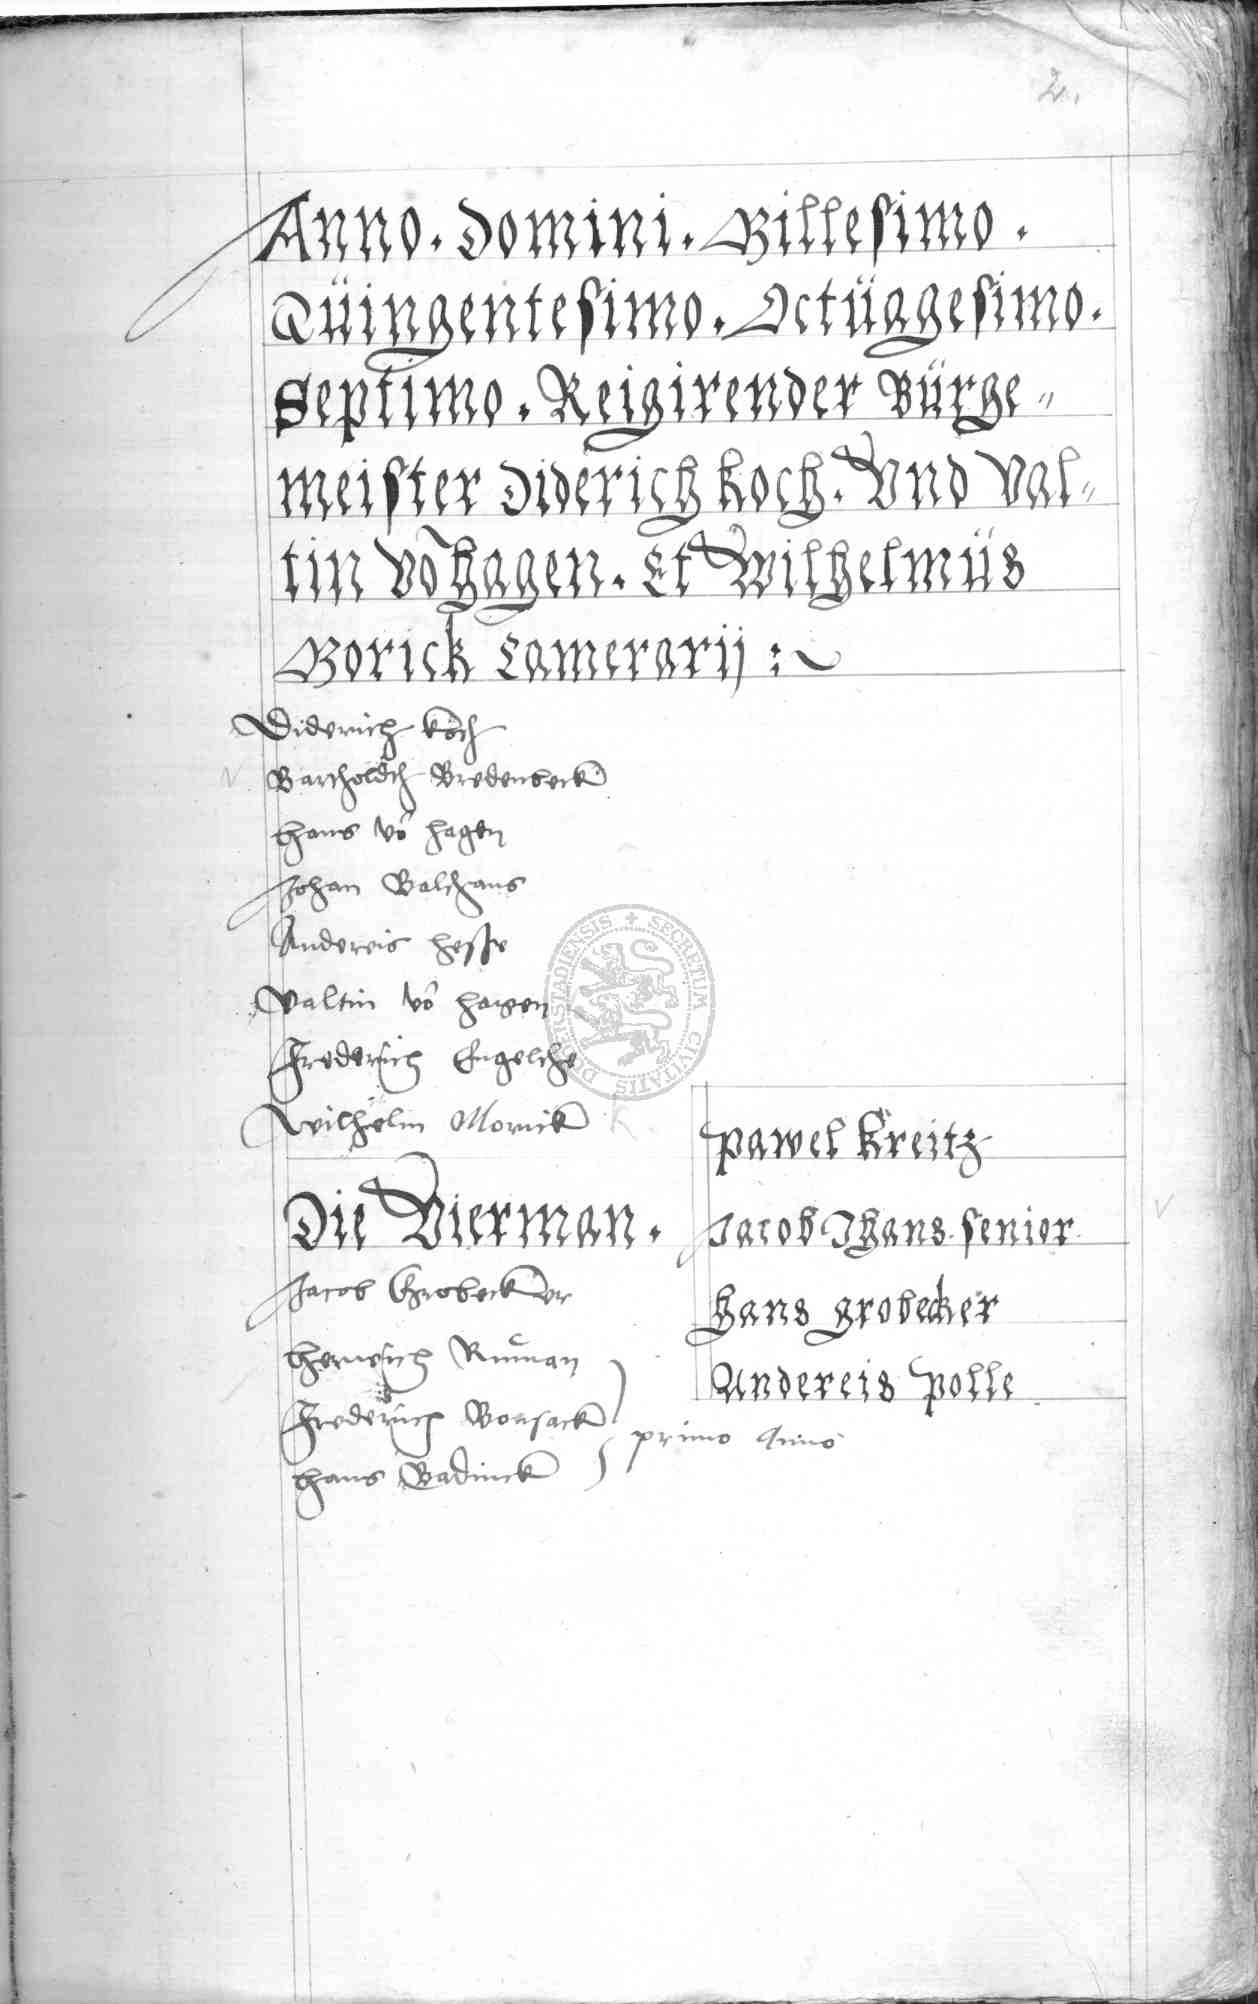 2.
Anno. Domini. Millesimo.
Qüingentesimo. Octüagesimo.
Septimo. Reigirender Bürge=
meister Diderich Koch. Vnd Val=
tin Vō hagen. Et Wilhelmüs
Morick Camerarij :~
Diderich Koch
Bartholdt Bredenbeck
Hans vō Hagen
Johan Balchaus
Andereis Hesse
Valtin vō Hagen
Frederich Engelche
Wilhelm Morrick K.
Die Vierman.
Jacob Grobecker
Henrich Ruman
Frederich Bonsack
Hans Badinck
primo Anno
Pawel Kreitz
Jacob Ihans. senior
Hans grobecker
Andereis Polle
SECRETUM CIVITATIS DUDERSTADIENSIS